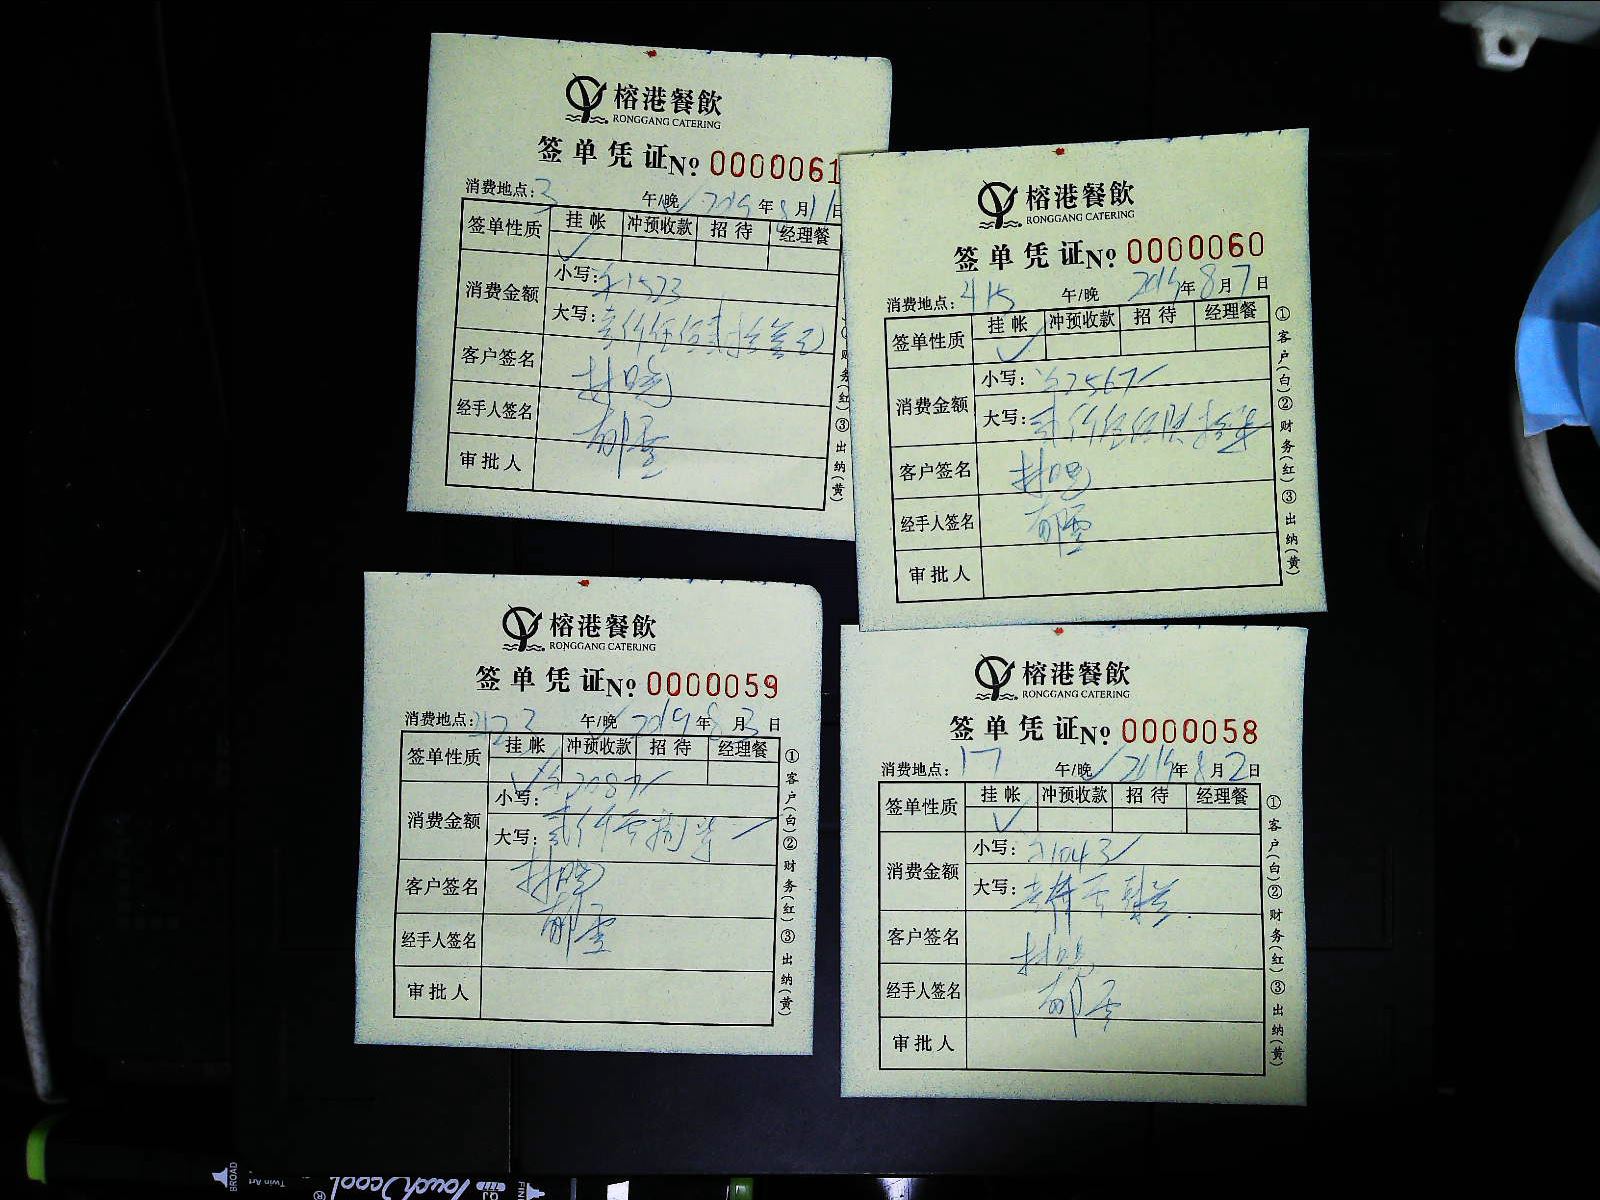 榕港餐飲
RONGGANG CATERING
签单凭证 № 0000061
消费地点: 3 午/晚 2019年8月11日
签单性质 挂帐 冲预收款 招待 经理餐
消费金额 小写: ¥1523
大写: 壹仟伍佰贰拾叁元
客户签名
经手人签名
审批人
财务(红) ③ 出纳(黄)
榕港餐飲
RONGGANG CATERING
签单凭证 № 0000060
消费地点: 415 午/晚 2019年8月7日
签单性质 挂帐 冲预收款 招待 经理餐
消费金额 小写: ¥2567
大写:
客户签名
经手人签名
审批人
① 客户(白) ② 财务(红) ③ 出纳(黄)
榕港餐飲
RONGGANG CATERING
签单凭证 № 0000059
消费地点: 午/晚 2019年8月3日
签单性质 挂帐 冲预收款 招待 经理餐
消费金额 小写: ¥2087
大写: 贰仟零捌柒
客户签名
经手人签名
审批人
① 客户(白) ② 财务(红) ③ 出纳(黄)
榕港餐飲
RONGGANG CATERING
签单凭证 № 0000058
消费地点: 17 午/晚 2019年8月2日
签单性质 挂帐 冲预收款 招待 经理餐
消费金额 小写: 1043
大写:
客户签名
经手人签名
审批人
① 客户(白) ② 财务(红) ③ 出纳(黄)
BROAD
Twin Art
Touch cool
FINE